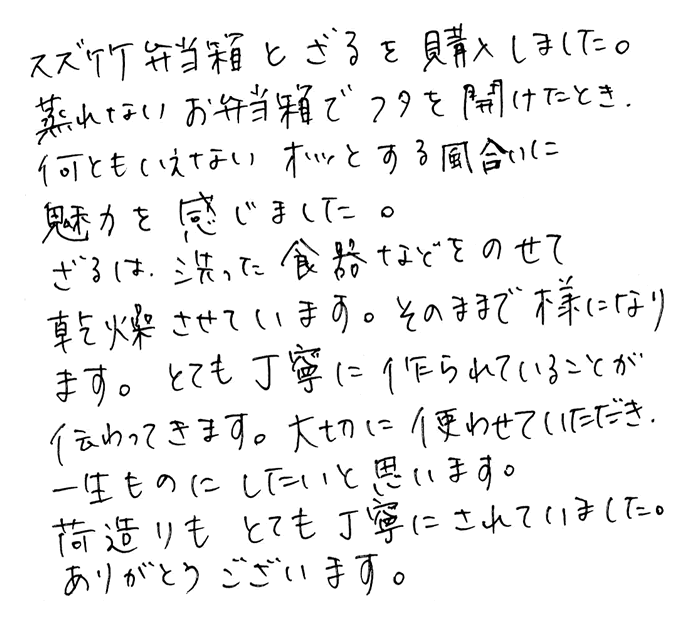 スズ竹弁当箱とざるを購入しました。
蒸れないお弁当箱でフタを開けたとき、
何ともいえない ホッとする風合いに
魅力を感じました。
ざるは、洗った食器などをのせて
乾燥させています。そのままで様になり
ます。とても丁寧に作られていることが
伝わってきます。大切に使わせていただき、
一生ものにしたいと思います。
荷造りも とても丁寧にされていました。
ありがとうございます。